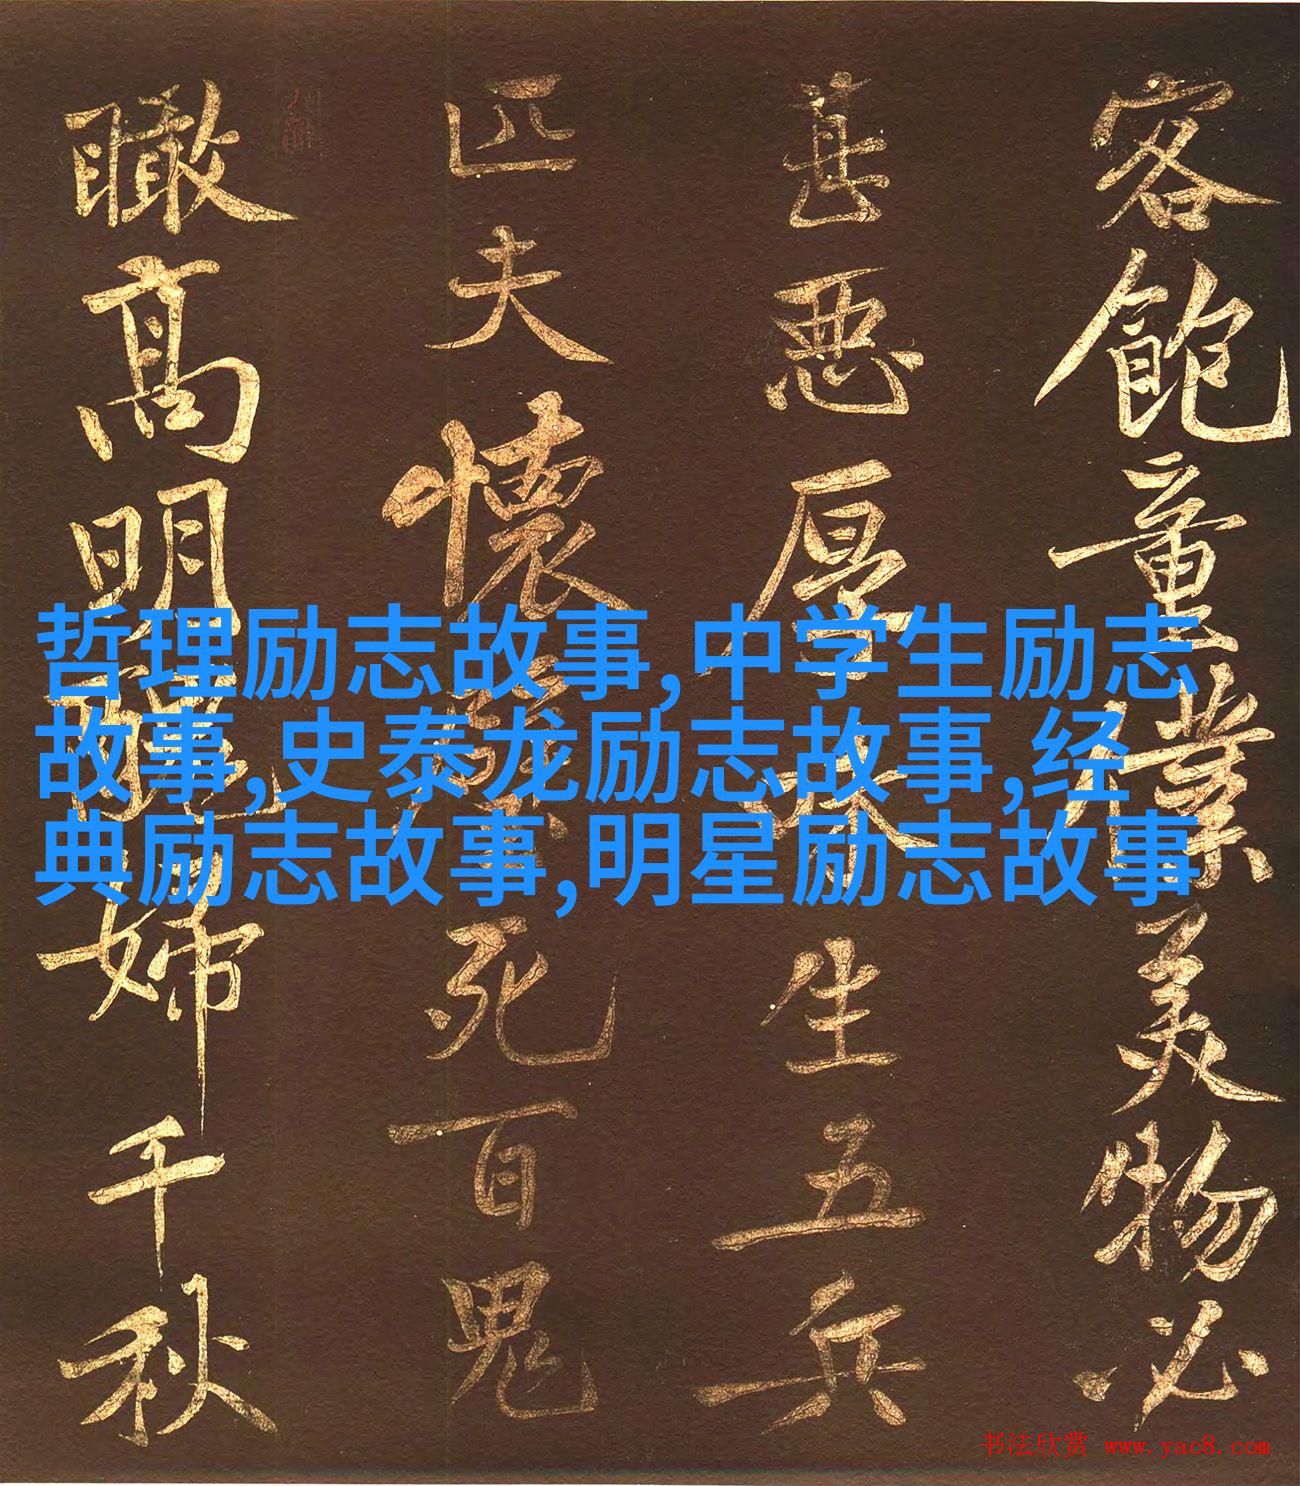 客飽童僕美物必
甚惡厚生五兵
匹夫懷死百鬼
瞰高明婦千秋
哲理励志故事,中学生励志
故事,史泰龙励志故事,经
典励志故事,明星励志故事
书法欣赏 www.yac8.com